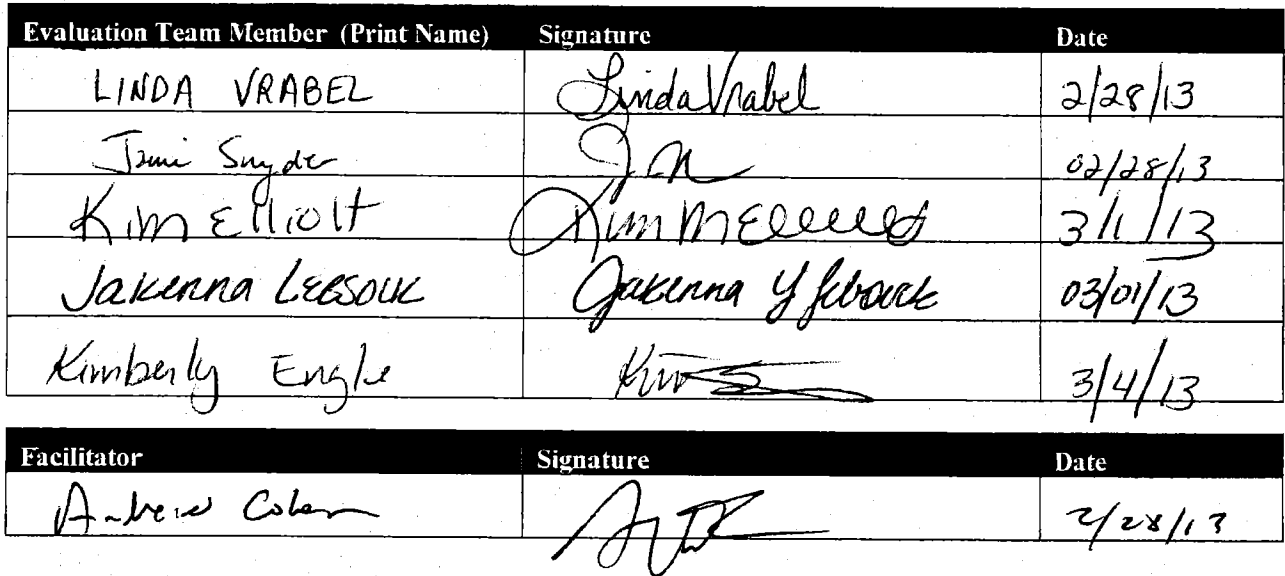 Evaluation Team Member (Print Name) Signature Date
LINDA VRABEL Linda Vrabel 2/28/13
Jami Snyder 02/28/13
Kim Elliott Kim M Elliott 3/1/13
Jakenna Lebsock Jakenna Y Lebsock 03/01/13
Kimberly Engle Kim 3/4/13
Facilitator Signature Date
Andrew Cohen 2/28/13